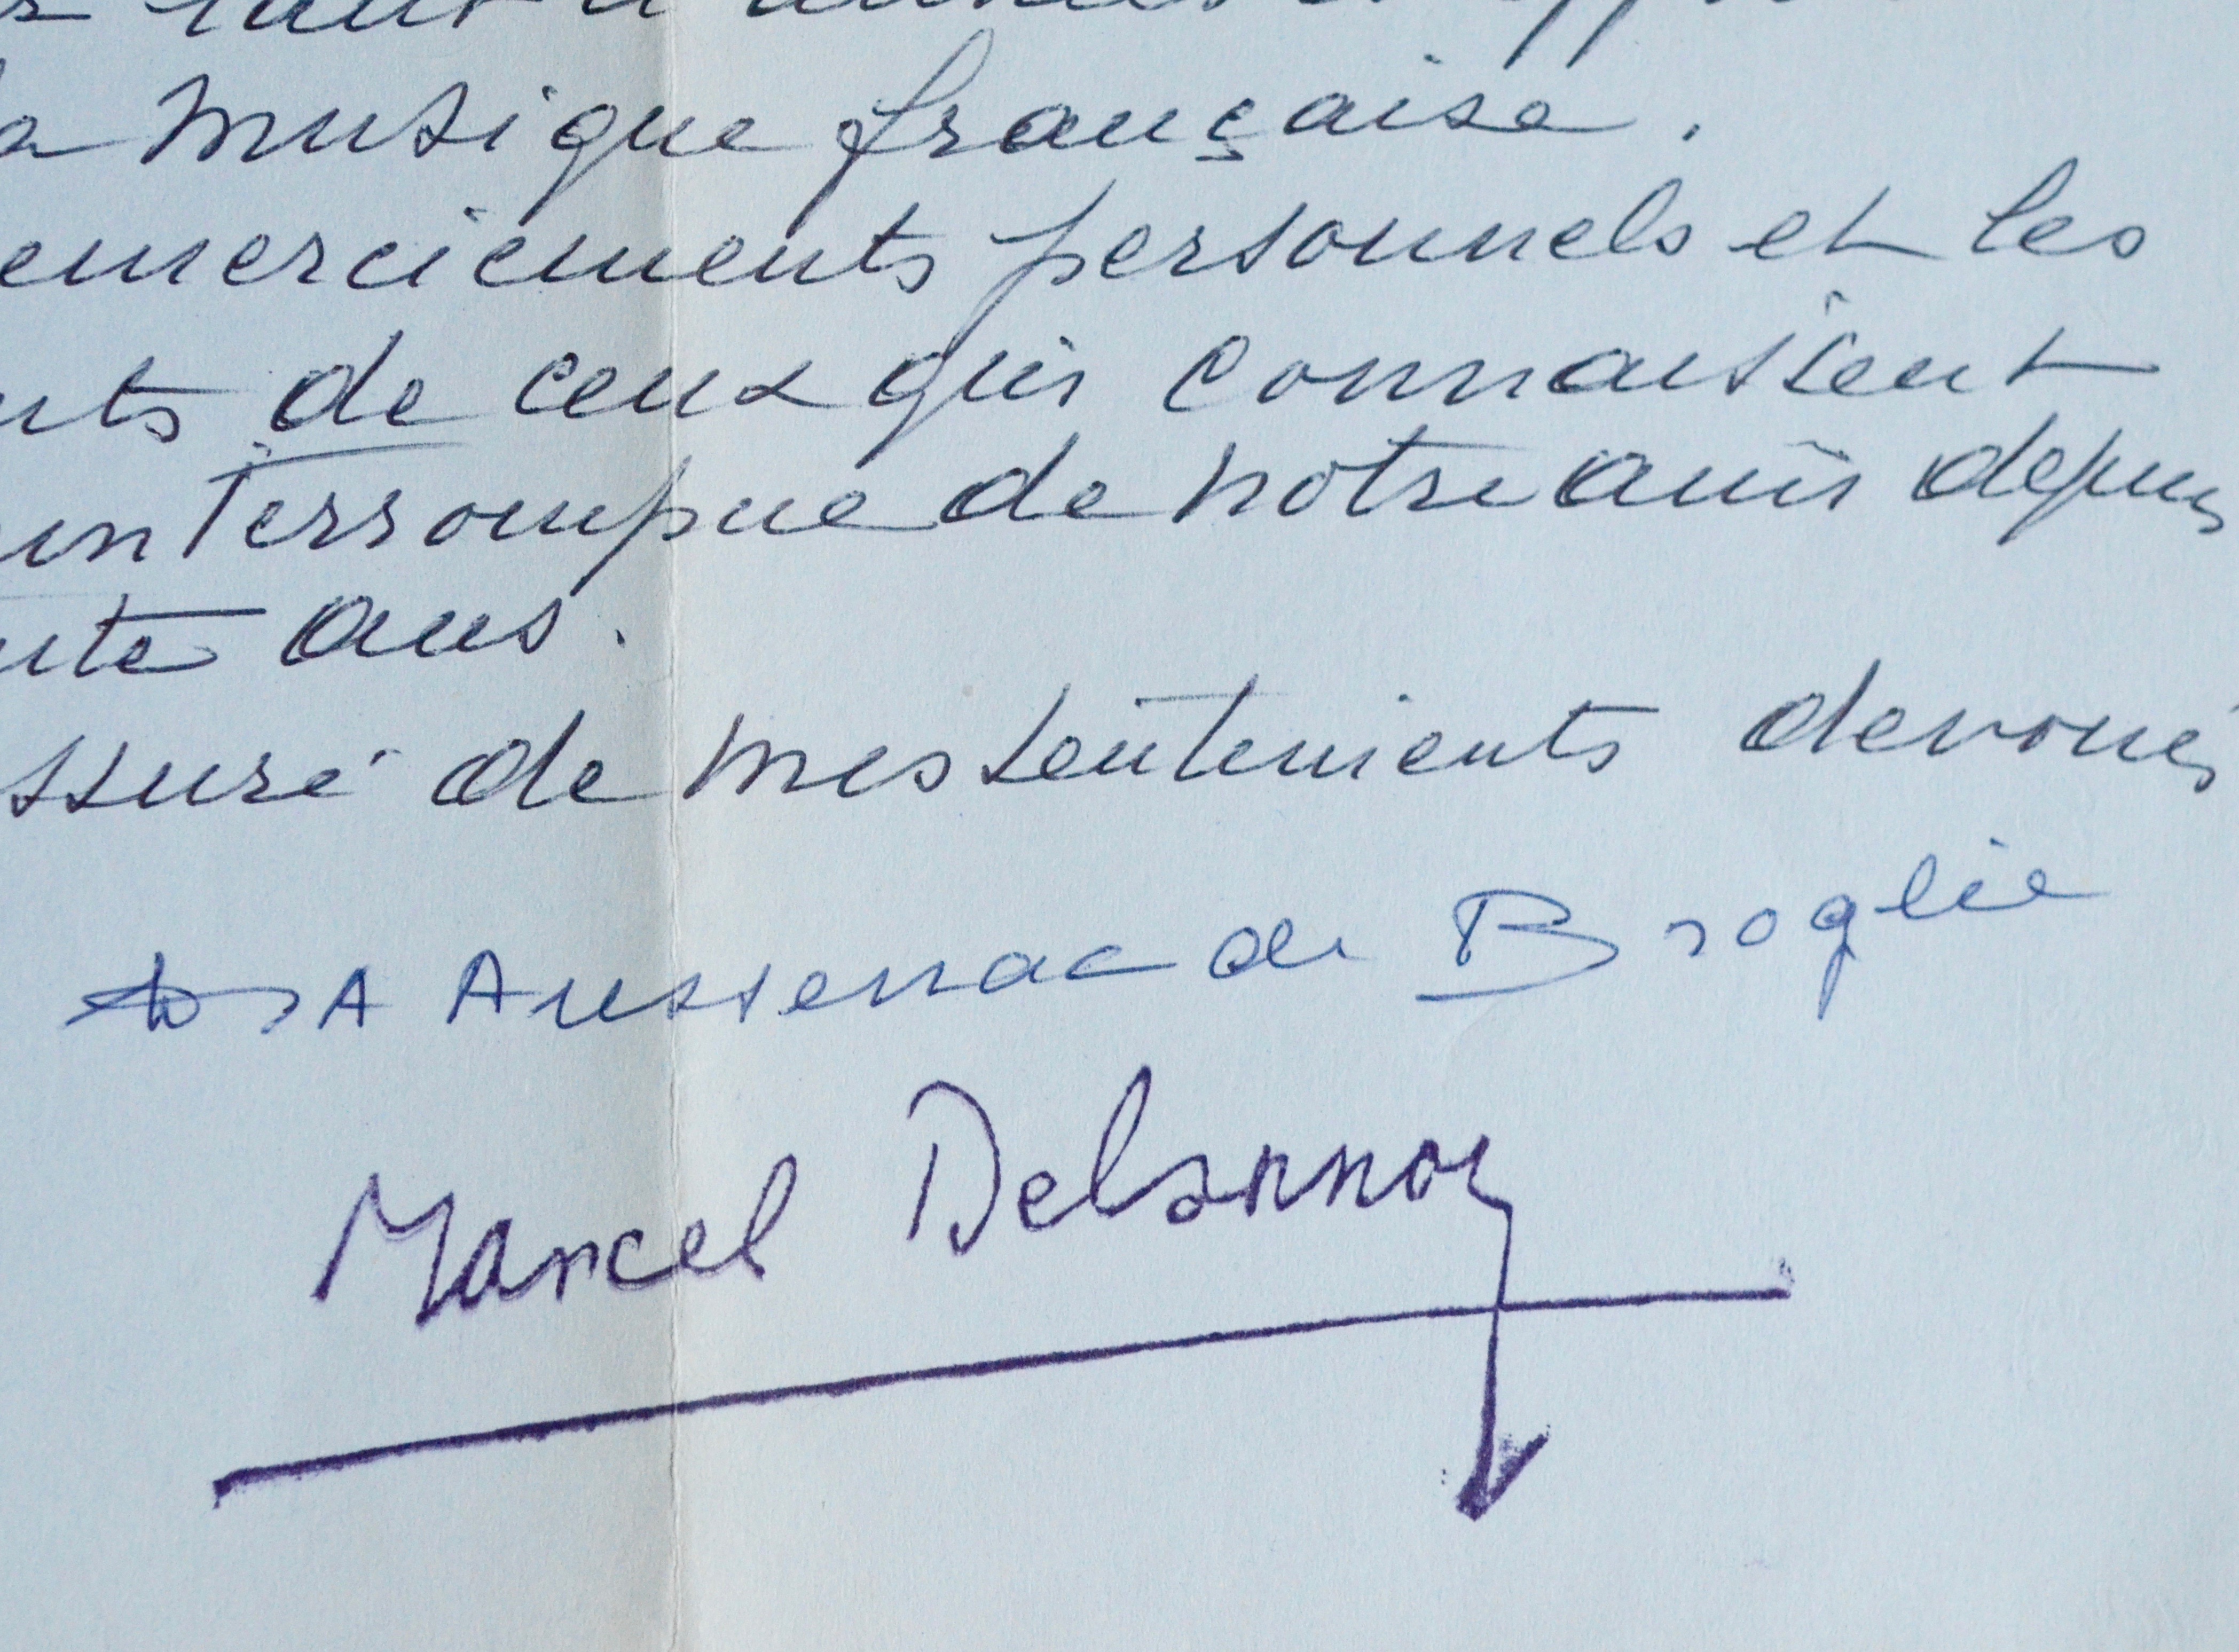 a musique française.
emerciements personnels et les
nts de ceux qui connaissent
interrompue de notre ami depuis
nte ans.
ssuré de mes sentiments devoués
A Aussenac de Broglie
Marcel Delannoy